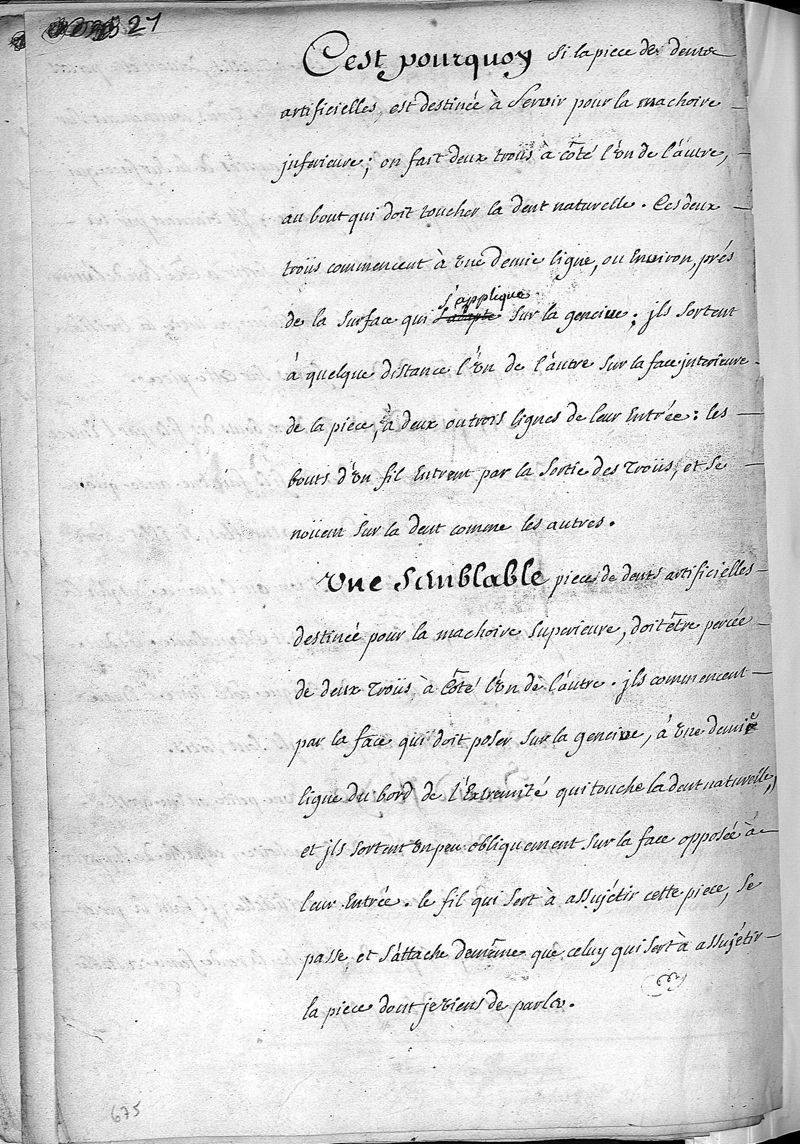 27
C'est pourquoy si la piece de dents
artificielles, est destinée à servir pour la machoire
jnferieure; on fait deux troüs à côté l'ûn de l'autre,
au bout qui doit toucher la dent naturelle. Ces deux
troüs commencent à une demie ligne, ou Environ, prés
s'applique
de la surface qui sur la gencive; jls sortent
à quelque distance l'Un de l'autre sur la face jnterieure
de la piece, à deux ou trois lignes de leur Entrée: les
bouts d'ûn fil Entrent par la sortie des Troüs, et se
noüent sur la dent comme les autres.
Une Semblable piece de dents artificielles
destinée pour la machoire superieure, doit être percée
de deux Troüs à Côté l'ûn de l'autre. jls commencent
par la face qui doit poser sur la gencive, à une demie
ligne du bord de l'Extremité qui touche la dent naturelle,
et jls sortent ûn peu obliquement sur la face opposée à
leur Entrée. le fil qui sert à assujétir cette piece, se
passe et s'attache de même que celuy qui sert à assujétir
la piece dont je viens de parler.
675